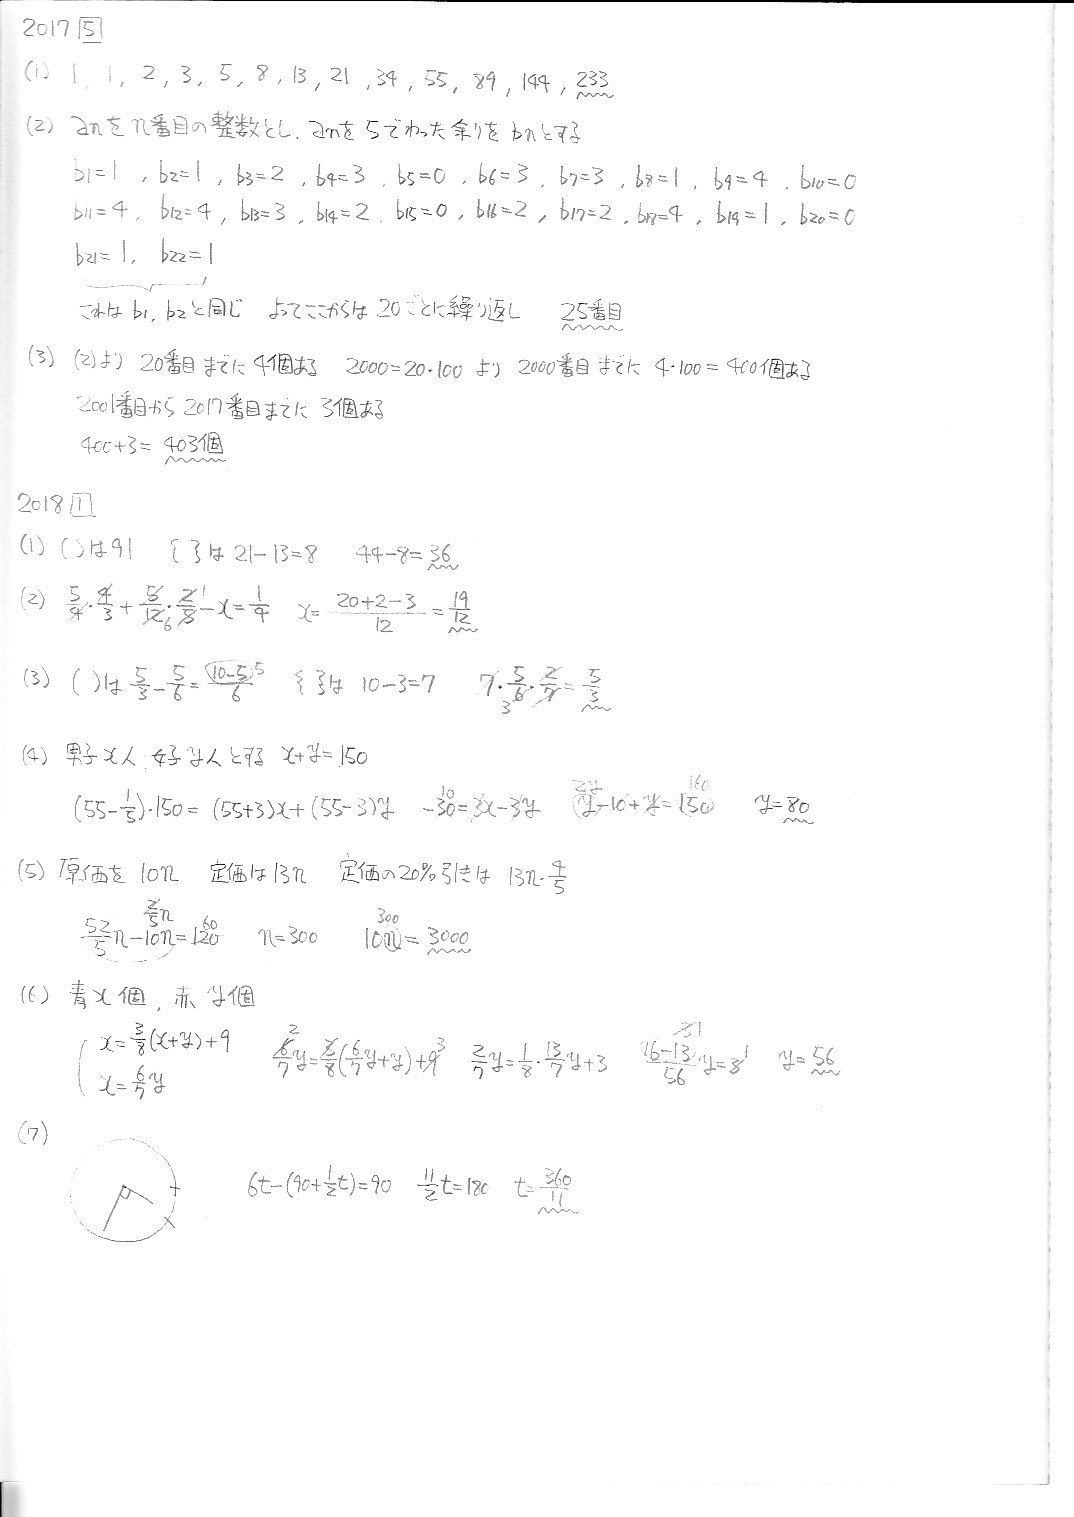 2017 5
(1) 1, 1, 2, 3, 5, 8, 13, 21, 34, 55, 89, 144, 233
(2) anをn番目の整数とし、anを5でわった余りをbnとする
b1=1, b2=1, b3=2, b4=3, b5=0, b6=3, b7=3, b8=1, b9=4, b10=0
b11=4, b12=4, b13=3, b14=2, b15=0, b16=2, b17=2, b18=4, b19=1, b20=0
b21=1, b22=1
これはb1, b2と同じ よってここからは20ごとに繰り返し 25番目
(3) (2)より 20番目までに4個ある 2000=20・100より 2000番目までに 4・100=400個ある
2001番目から2017番目までに 3個ある
400+3=403個
2018 1
(1) ( )は91 { }は 21-13=8 44-8=36
(2) 5/4・4/3+5/12・2/5-x=1/4 x=(20+2-3)/12=19/12
(3) ( )は 5/3-5/6=(10-5)/6 5 { }は 10-3=7 7・5/6・2/7=5/3
(4) 男子x人、女子y人とする x+y=150
(55-1/5)・150=(55+3)x+(55-3)y -30=3x-3y y-10+y=150 y=80
(5) 原価を10n 定価は13n 定価の20%引きは 13n・4/5
52/5n-10n=120 n=300 10n=3000
(6) 青x個、赤y個
x=3/8(x+y)+9 6/7y=3/8(6/7y+y)+9 2/7y=1/8・13/7y+3 (16-13)/56y=3 y=56
x=6/7y
(7)
6t-(90+1/2t)=90 11/2t=180 t=360/11